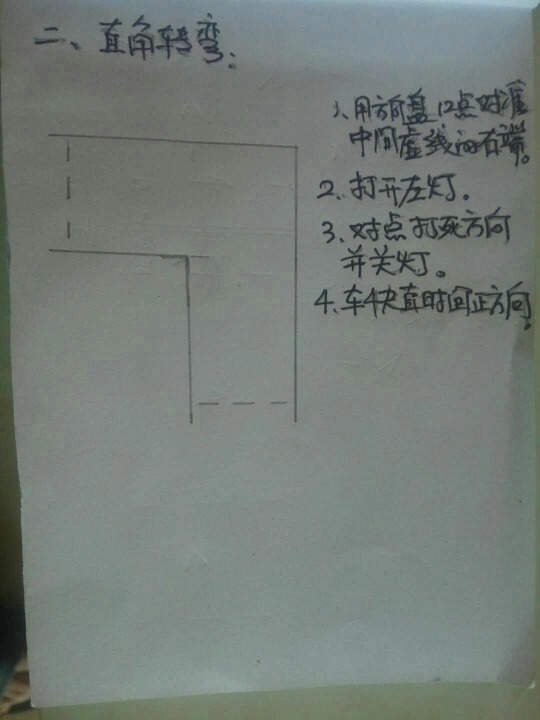 二、直角转弯:
1、用方向盘12点对准
中间虚线的右端。
2、打开左灯。
3、对点打死方向
并关灯。
4、车快直时回正方向。